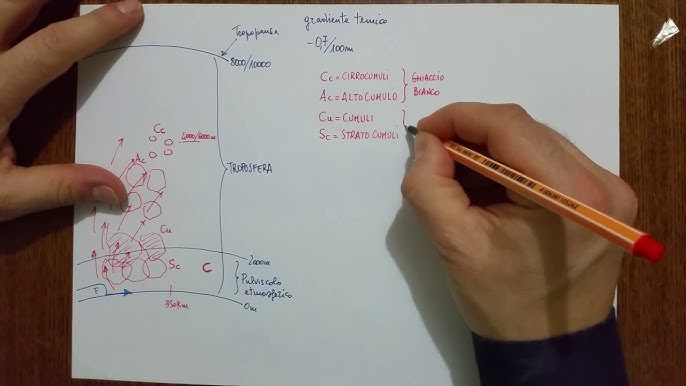 gradiente termico
-0,7/100m
Tropopausa
8000/10000
Cc = CIRROCUMULI
Ac = ALTOCUMULO
GHIACCIO
BIANCO
Cu = CUMULI
Sc = STRATO CUMULI
Cc
4000/6000m
Ac
TROPOSFERA
Cu
Sc
C
2000m
Pulviscolo
atmosferico
F
350km
0m